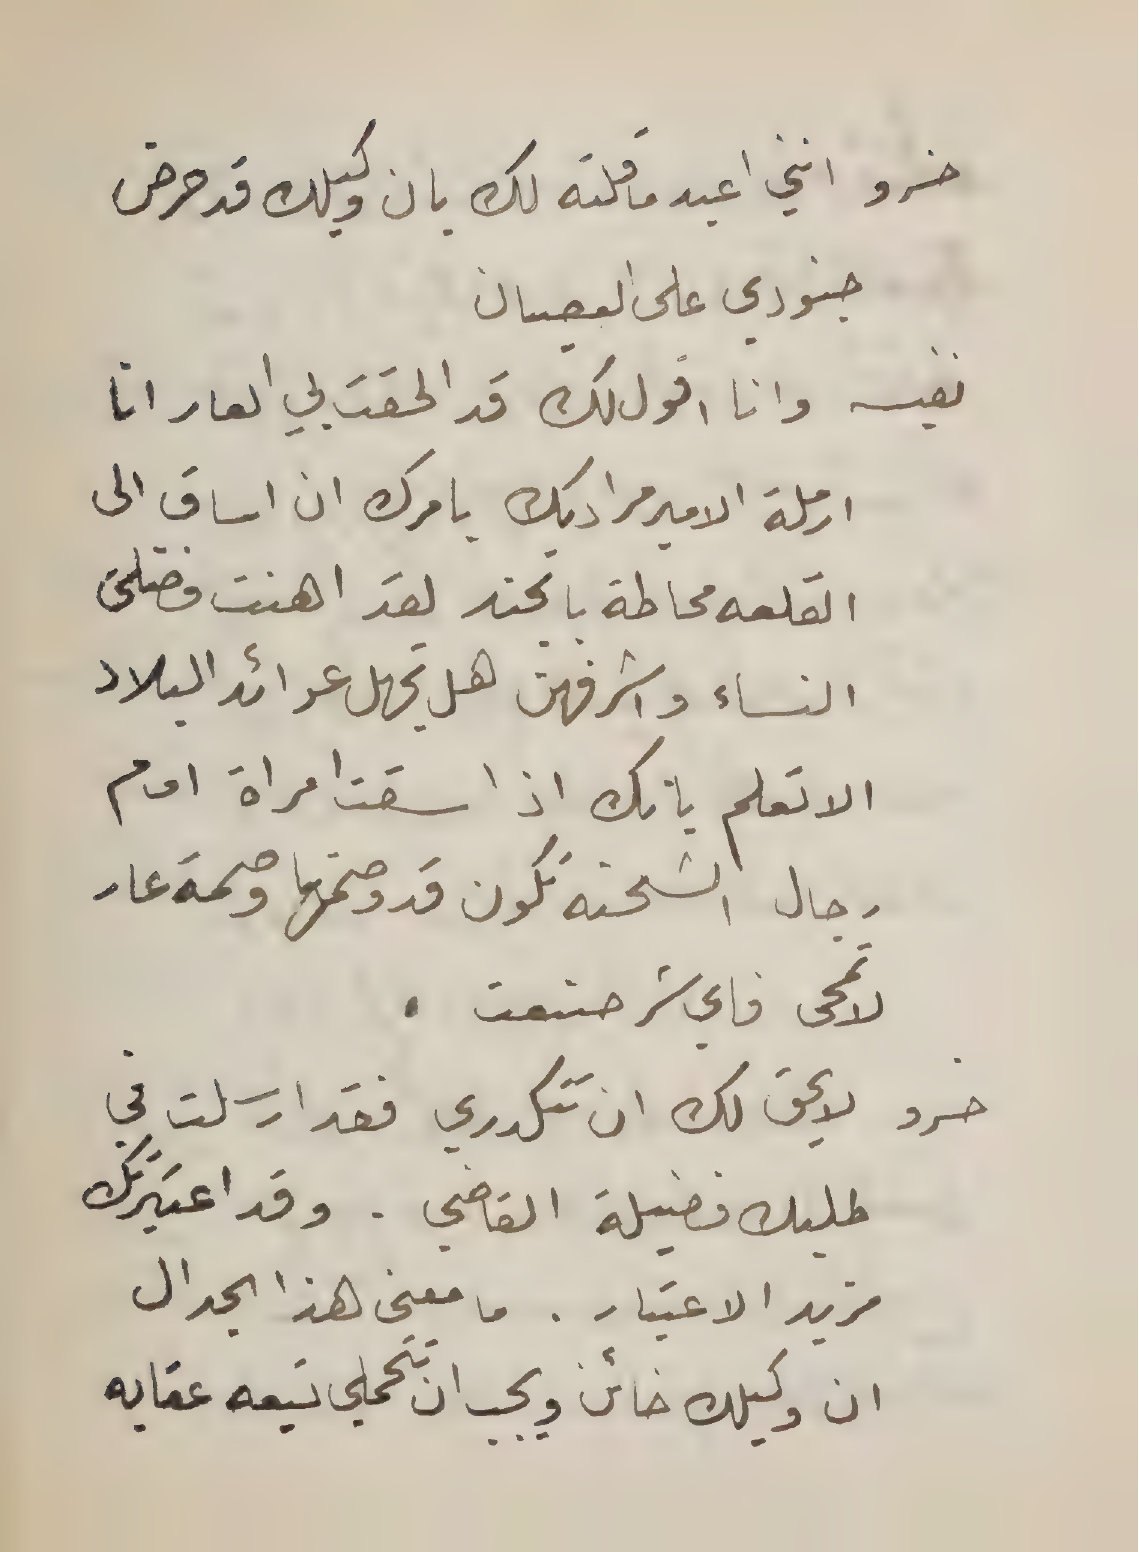 خسرو انني اعيد ماقلته لك بان وكيلك قد حرض
جنودي على العصيان
نفيسه وانا اقول لك قد الحقت بي العار انا
ارملة الامير مراد بك يامرك ان اساق الى
القلعه محاطة بالجند لقد اهنت فضلى
النساء واشرفهن هل تجهل عوائد البلاد
الا تعلم بانك اذا سقت امراة امام
رجال الشحنه تكون قد وصمتها وصمة عار
لاتمحى فاي شر صنعت .
خسرو لايحق لك ان تتكدري فقد ارسلت في
طلبك فضيلة القاضي . وقد اعتبرتك
مزيد الاعتبار . ما معنى هذا الجدال
ان وكيلك خائن ويجب ان تتحملي تبعه عقابه